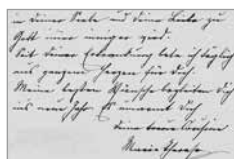 in deiner Seele und deine Liebe zu
Gott immer inniger wird.
Seit deiner Erkrankung bete ich täglich
aus ganzem Herzen für Dich.
Meine besten Wünsche begleiten Dich
ins neue Jahr. Es umarmt Dich
Deine treue Cousine
Maria Theresa